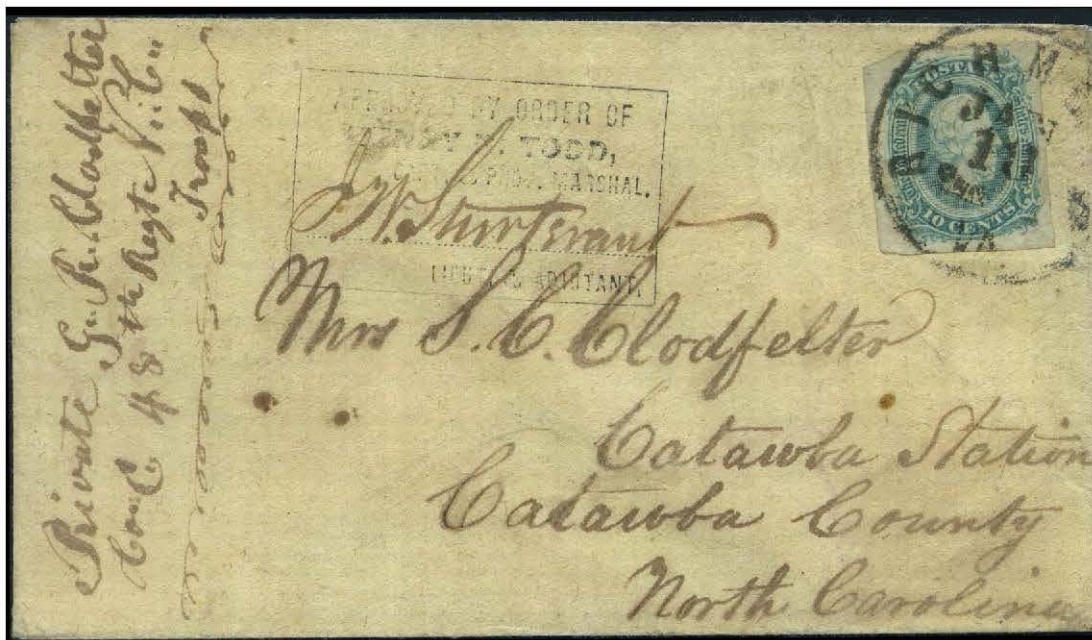 Private G. R. Clodfelter
Co. C 48th Regt N.C.
Troops
APPROVED BY ORDER OF
TODD,
PROV. MARSHAL.
J W Sturtevant
LIEUT. & ADJUTANT.
RICHM
JAN
VA
POSTAGE
10 CENTS
Mrs S. C. Clodfelter
Catawba Station
Catawba County
North Carolina